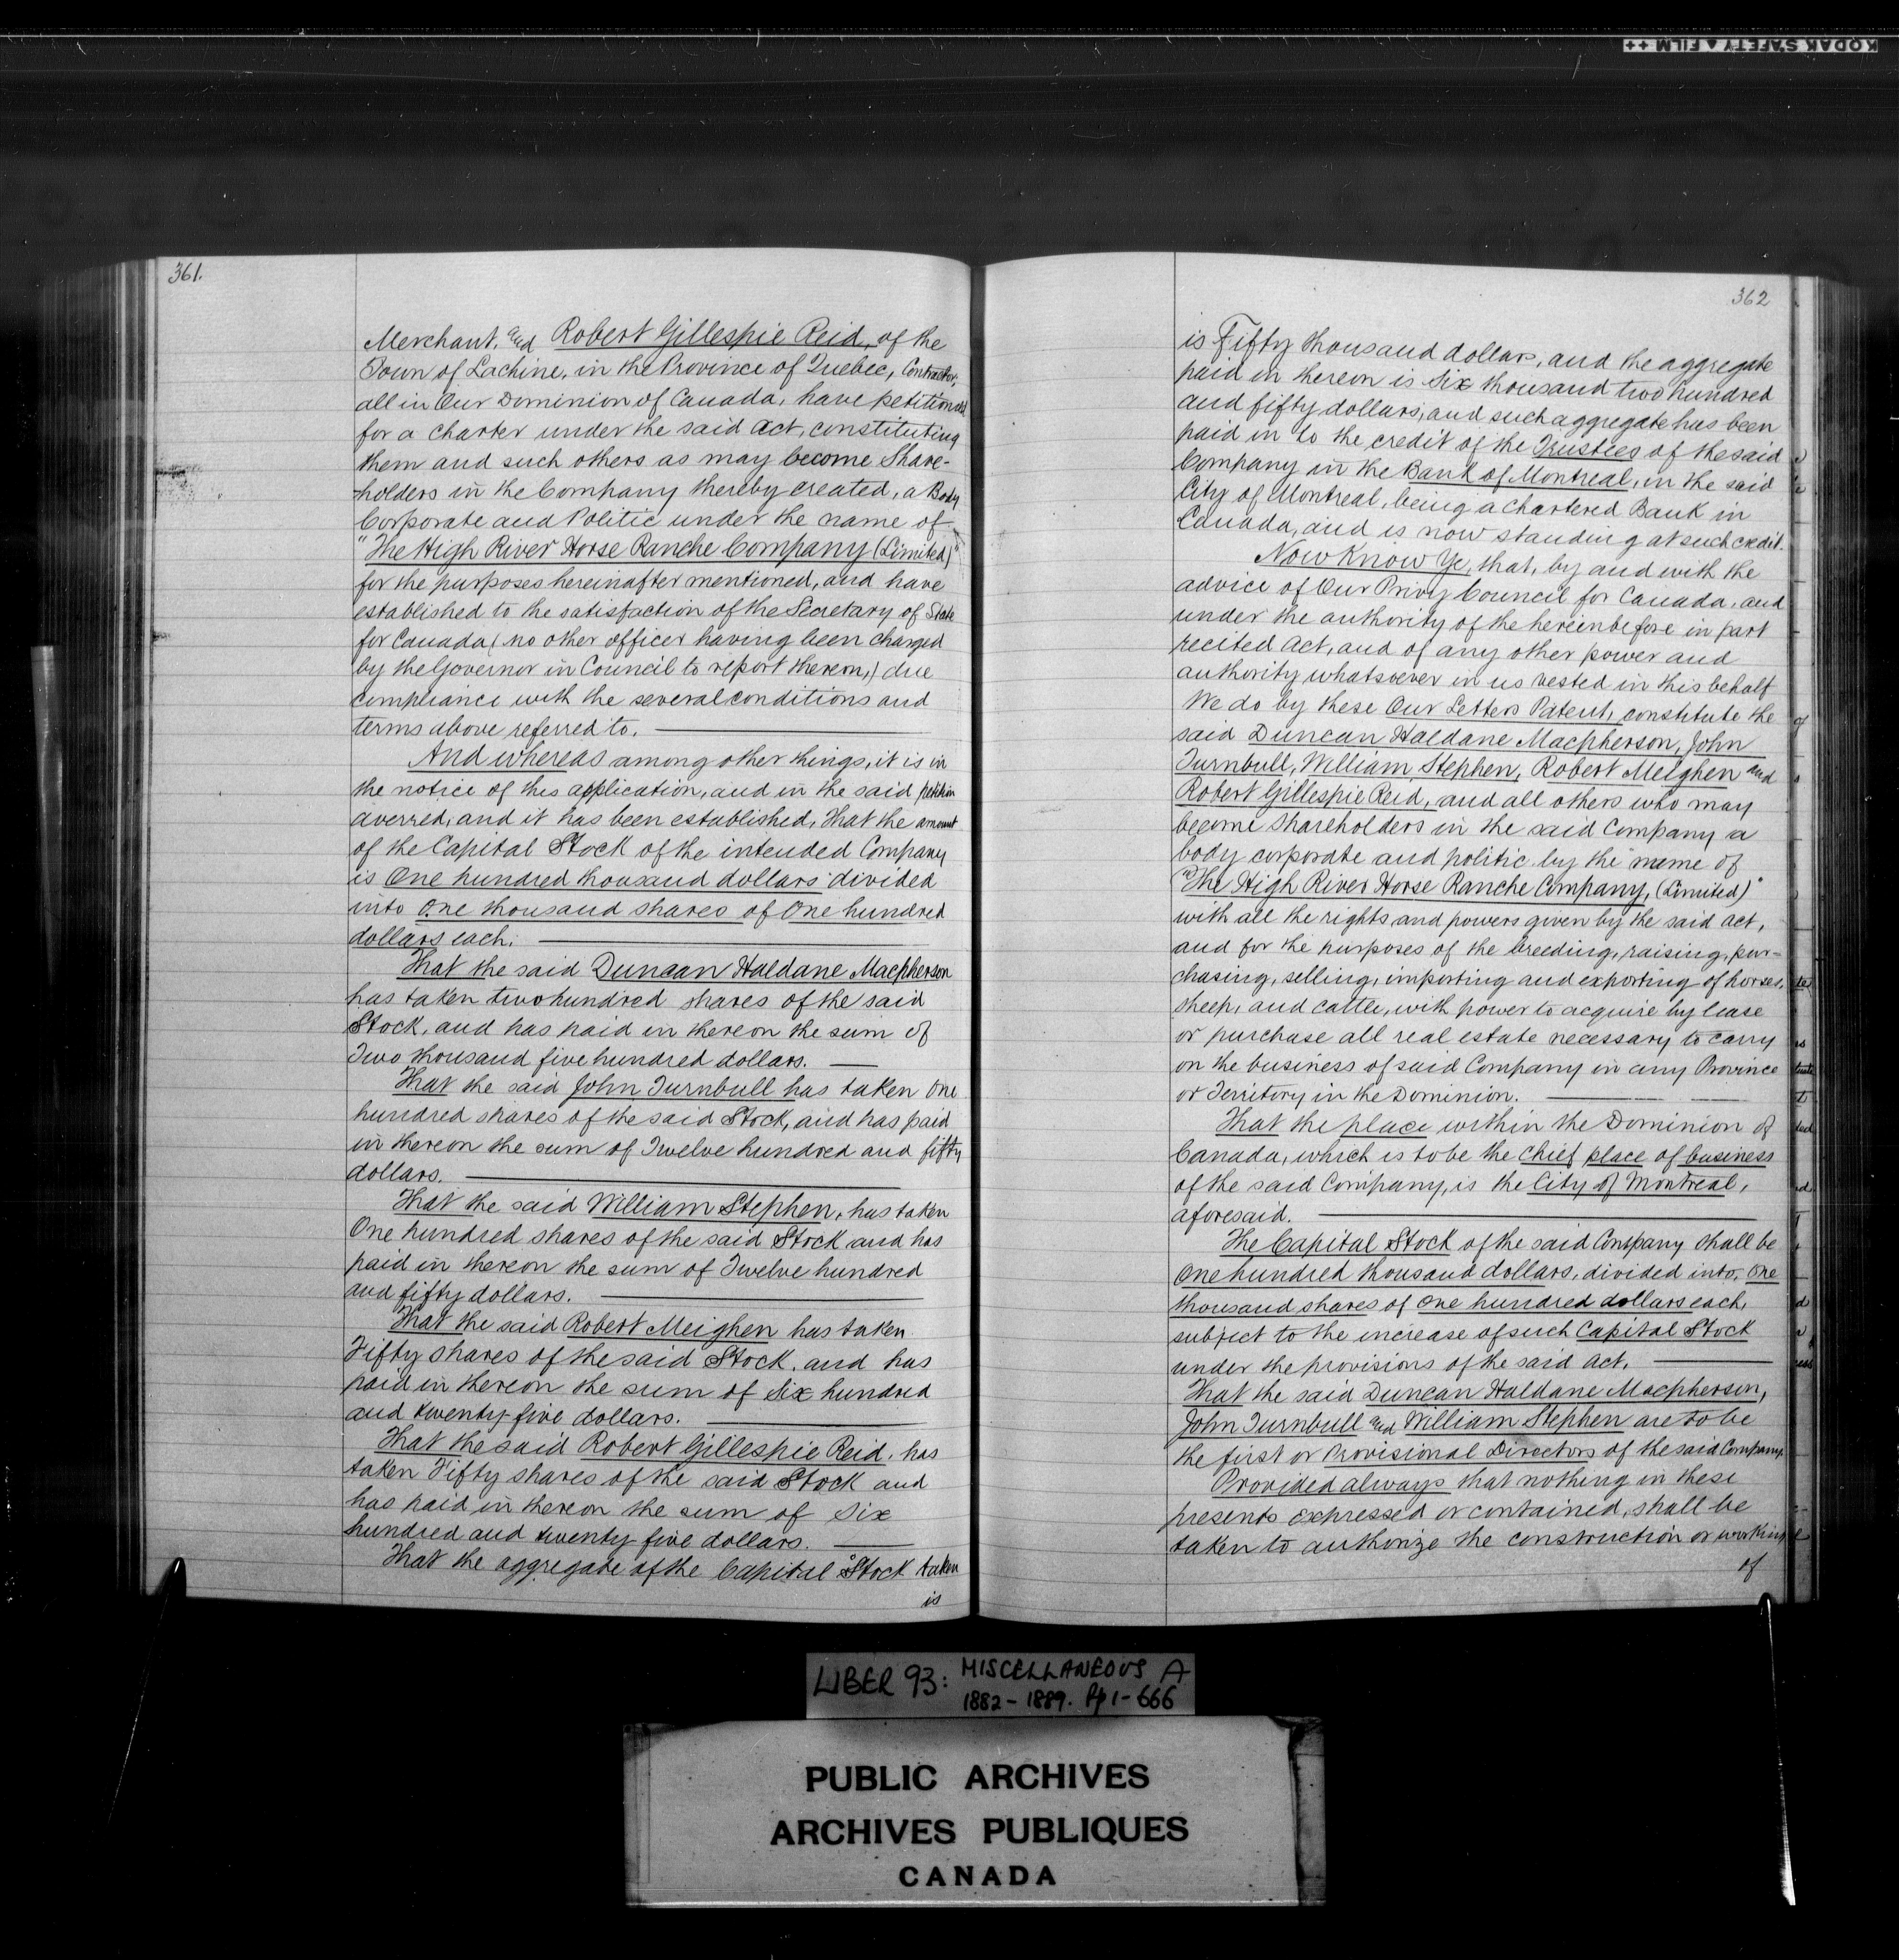 KODAK SAFETY FILM ++
361.
Merchant, and Robert Gillespie Reid, of the
Town of Lachine, in the Province of Quebec, Contractor,
all in Our Dominion of Canada, have petitioned
for a charter under the said Act, constituting
them and such others as may become Share-
-holders in the Company thereby created, a Body
Corporate and Politic under the name of
"The High River Horse Ranche Company (Limited)"
for the purposes hereinafter mentioned, and have
established to the satisfaction of the Secretary of State
for Canada (no other officer having been charged
by the Governor in Council to report thereon,) due
compliance with the several conditions and
terms above referred to.
And whereas among other things, it is in
the notice of this application, and in the said petition
averred, and it has been established, that the amount
of the Capital Stock of the intended Company
is One hundred thousand dollars divided
into One thousand shares of One hundred
dollars each.
That the said Duncan Haldane Macpherson
has taken two hundred shares of the said
Stock, and has paid in thereon the sum of
Two thousand five hundred dollars.
That the said John Turnbull has taken One
hundred shares of the said Stock, and has paid
in thereon the sum of Twelve hundred and fifty
dollars.
That the said William Stephen, has taken
One hundred shares of the said Stock and has
paid in thereon the sum of Twelve hundred
and fifty dollars.
That the said Robert Meighen has taken
Fifty shares of the said Stock, and has
paid in thereon the sum of Six hundred
and twenty-five dollars.
That the said Robert Gillespie Reid, has
taken Fifty shares of the said Stock and
has paid in thereon the sum of Six
hundred and twenty five dollars.
That the aggregate of the Capital Stock taken
is
362
is Fifty thousand dollars, and the aggregate
paid in thereon is Six thousand two hundred
and fifty dollars, and such aggregate has been
paid in to the credit of the Trustees of the said
Company in the Bank of Montreal, in the said
City of Montreal, being a chartered Bank in
Canada, and is now standing at such credit.
Now Know Ye, that, by and with the
advice of Our Privy Council for Canada, and
under the authority of the hereinbefore in part
recited Act, and of any other power and
authority whatsoever in us vested in this behalf
We do by these Our Letters Patent, constitute the
said Duncan Haldane Macpherson, John
Turnbull, William Stephen, Robert Meighen and
Robert Gillespie Reid, and all others who may
become shareholders in the said Company a
body corporate and politic by the name of
"The High River Horse Ranche Company, (Limited)"
with all the rights and powers given by the said Act,
and for the purposes of the breeding, raising, pur-
chasing, selling, importing and exporting of horses,
sheep, and cattle, with power to acquire by lease
or purchase all real estate necessary to carry
on the business of said Company in any Province
or Territory in the Dominion.
That the place within the Dominion of
Canada, which is to be the chief place of business
of the said Company, is the City of Montreal,
aforesaid.
The Capital Stock of the said Company shall be
One hundred thousand dollars, divided into, One
thousand shares of One hundred dollars each,
subject to the increase of such Capital Stock
under the provisions of the said Act.
That the said Duncan Haldane Macpherson,
John Turnbull and William Stephen are to be
the first or Provisional Directors of the said Company.
Provided always that nothing in these
presents expressed or contained, shall be
taken to authorize the construction or working
of
LIBER 93: MISCELLANEOUS A
1882-1889. Pp 1-666
PUBLIC ARCHIVES
ARCHIVES PUBLIQUES
CANADA